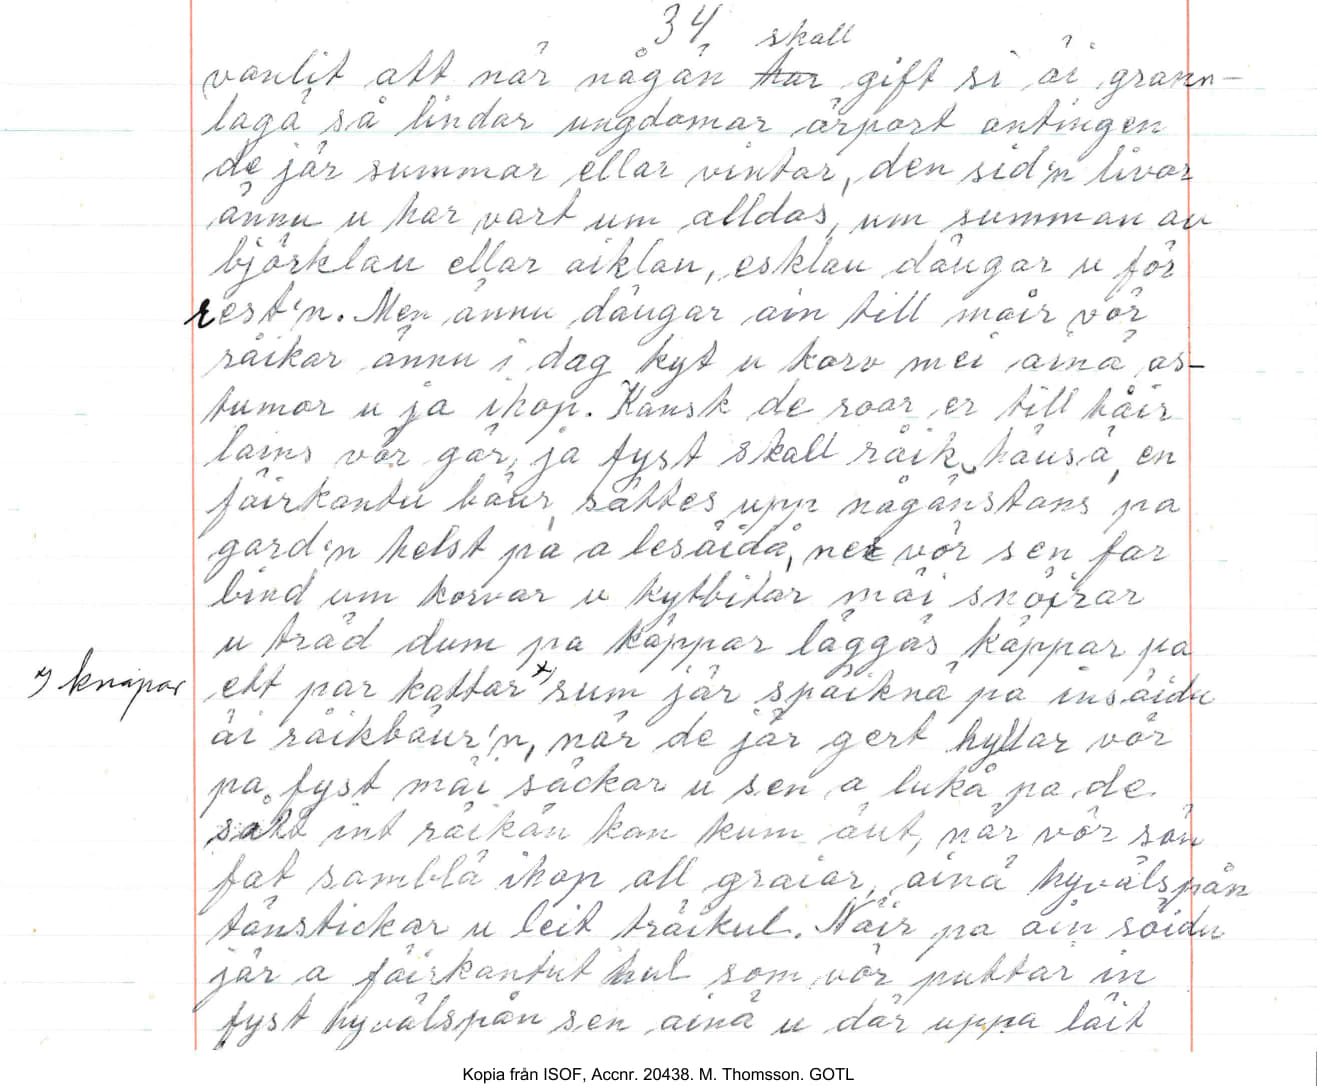 34
skall
vanlit att när någån har gift si äi grann-
lagå så lindar ungdomar ärport antingen
de jär summar ellar vintar, den sid'n livar
ännu u har vart um alldas, um summan au
björklau ellar aiklau, esklau däugar u för
rest'n. Men ännu däugar ain till mair vör
räikar ännu i dag kyt u korv mei ainå os-
tumor u ja ihop. Kansk de roar er till håir
lains vör gär, ja fyst skall räik häuså, en
fäirkantu bäur, sättes upp någånstans pa
gard'n helst pa a lesäidå, nei vör sen far
bind um korvar u kytbitar mäi snöirar
u träd dum pa käppar läggäs käppar pa
x) knapar
ett par kattar x) sum jär späiknå pa insäidu
äi räikbäur'n, när de jär gert hyllar vör
pa fyst mäi säckar u sen a lukå pa de
satt int räikän kan kum äut, när vör sån
fat samblå ihop all graiar, ainå hyvälspån
tänstickar u leit träikul. Näir pa ain säidu
jär a fäirkantut hul som vör puttar in
fyst hyvälspån sen ainå u där uppa läit
Kopia från ISOF, Accnr. 20438. M. Thomsson. GOTL